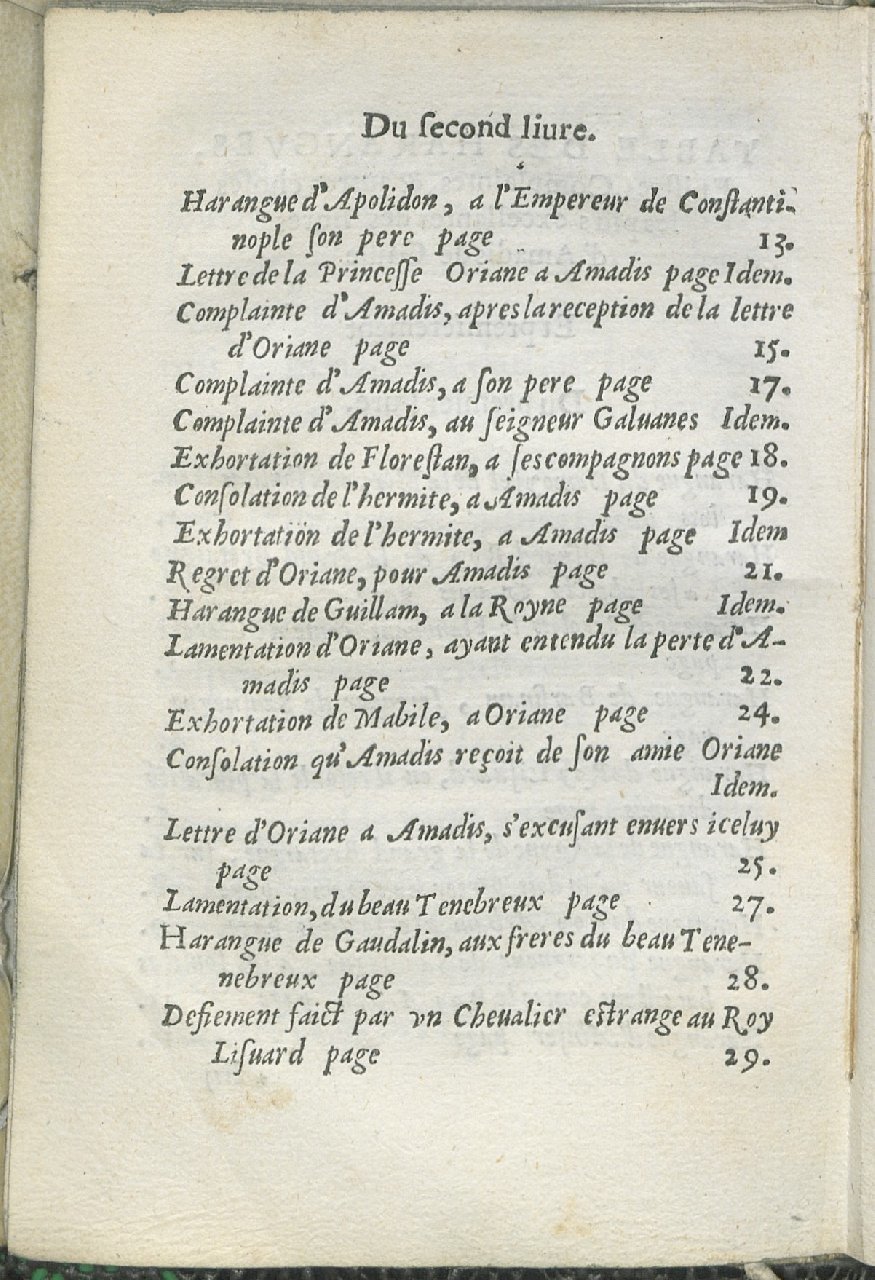 Du ſecond liure.
Harangue d'Apolidon, a l'Empereur de Conſtanti-
nople ſon pere page 13.
Lettre de la Princeſſe Oriane a Amadis page Idem.
Complainte d'Amadis, apres la reception de la lettre
d'Oriane page 15.
Complainte d'Amadis, a ſon pere page 17.
Complainte d'Amadis, au ſeigneur Galuanes Idem.
Exhortation de Floreſtan, a ſes compagnons page 18.
Conſolation de l'hermite, a Amadis page 19.
Exhortation de l'hermite, a Amadis page Idem
Regret d'Oriane, pour Amadis page 21.
Harangue de Guillam, a la Royne page Idem.
Lamentation d'Oriane, ayant entendu la perte d'A-
madis page 22.
Exhortation de Mabile, a Oriane page 24.
Conſolation qu'Amadis reçoit de ſon amie Oriane
Idem.
Lettre d'Oriane a Amadis, s'excuſant enuers iceluy
page 25.
Lamentation, du beau Tenebreux page 27.
Harangue de Gaudalin, aux freres du beau Tene-
nebreux page 28.
Defiement faict par vn Cheualier eſtrange au Roy
Liſuard page 29.